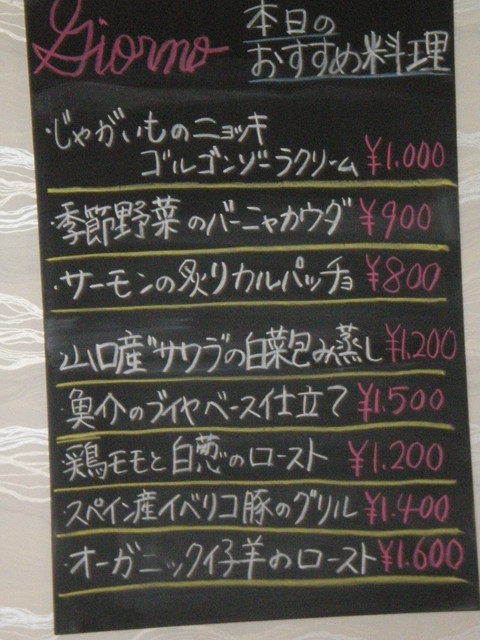 Giorno
本日の
おすすめ料理
・じゃがいものニョッキ
ゴルゴンゾーラクリーム ¥1.000
・季節野菜のバーニャカウダ ¥900
・サーモンの炙りカルパッチョ ¥800
・山口産サワラの白菜包み蒸し ¥1.200
・魚介のブイヤベース仕立て ¥1.500
・鶏モモと白葱のロースト ¥1.200
・スペイン産イベリコ豚のグリル ¥1.400
・オーガニック仔羊のロースト ¥1.600